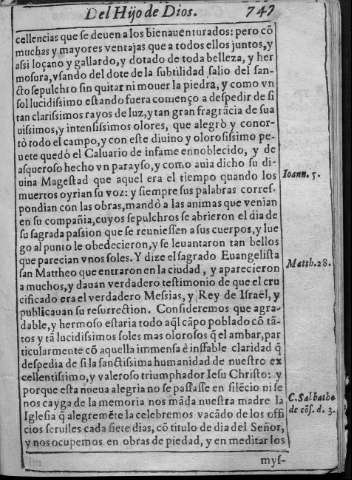 Del Hijo de Dios. 747
cellencias que se deuen a los bienauenturados: pero cõ
muchas y mayores ventajas que a todos ellos juntos, y
assi loçano y gallardo, y dotado de toda belleza, y her
mosura, vsando del dote de la subtilidad salio del san-
cto sepulchro sin quitar ni mouer la piedra, y como vn
sol lucidissimo estando fuera començo a despedir de si
tan clarissimos rayos de luz, y tan gran fragrãcia de sua
uissimos, y intensissimos olores, que alegrò y confor-
tò todo el campo, y con este diuino y olorosissimo pe-
uete quedó el Caluario de infame ennoblecido, y de
asqueroso hecho vn parayso, y como auia dicho su di-
uina Magestad que aquel era el tiempo quando los
muertos oyrian su voz: y siempre sus palabras corres-
pondian con las obras, mandò a las animas que venian
en su compañia, cuyos sepulchros se abrieron el dia de
su sagrada passion que se reuniessen a sus cuerpos, y lue
go al punto le obedecieron, y se leuantaron tan bellos
que parecian vnos soles. Y dize el sagrado Euangelista
san Mattheo que entraron en la ciudad, y aparecieron
a muchos, y dauan verdadero testimonio de que el cru
cificado era el verdadero Messias, y Rey de Israël, y
publicauan su resurrection. Consideremos que agra-
dable, y hermoso estaria todo aq̃l cãpo poblado cõ tã-
tos y tã lucidissimos soles mas olorosos q̃ el ambar, par
ticularmente cõ aquella immensa è inefable claridad q̃
despedia de si la sanctissima humanidad de nuestro ex
cellentissimo, y valeroso triumphador Iesu Christo: y
porque esta noeua alegria no se passasse en silẽcio ni se
nos cayga de la memoria nos mãda nuestra madre la
Iglesia q̃ alegremẽte la celebremos vacãdo de los offi
cios seruiles cada siete dias, cõ titulo de dia del Señor,
y nos ocupemos en obras de piedad, y en meditar los
mys-
Ioann. 5.
Matth. 28.
de cõs. d. 3.